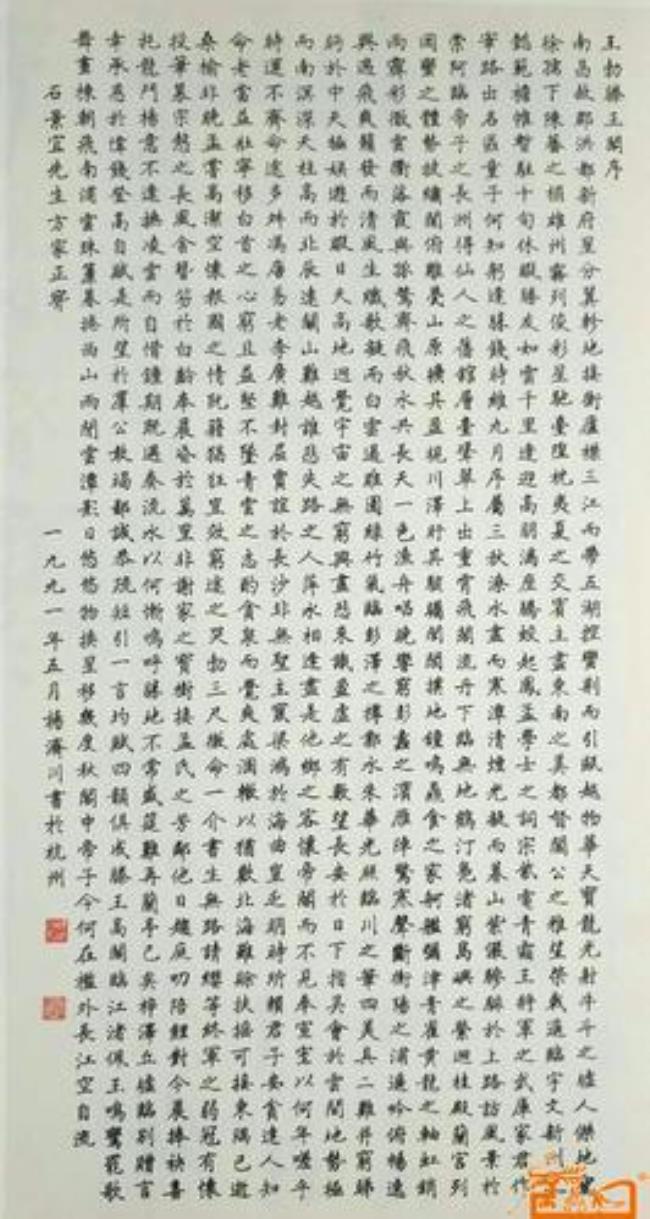 王勃滕王閣序
南昌故郡洪都新府星分翼軫地接衡廬襟三江而帶五湖控蠻荊而引甌越物華天寶龍光射牛斗之墟人傑地靈
徐孺下陳蕃之榻雄州霧列俊彩星馳臺隍枕夷夏之交賓主盡東南之美都督閻公之雅望棨戟遙臨宇文新州之
懿範襜帷暫駐十旬休暇勝友如雲千里逢迎高朋滿座騰蛟起鳳孟學士之詞宗紫電青霜王將軍之武庫家君作
宰路出名區童子何知躬逢勝餞時維九月序屬三秋潦水盡而寒潭清煙光凝而暮山紫儼驂騑於上路訪風景於
崇阿臨帝子之長洲得仙人之舊館層臺聳翠上出重霄飛閣流丹下臨無地鶴汀鳧渚窮島嶼之縈迴桂殿蘭宮列
岡巒之體勢披繡闥俯雕甍山原曠其盈視川澤盱其駭矚閭閻撲地鐘鳴鼎食之家舸艦彌津青雀黃龍之軸虹銷
雨霽彩徹雲衢落霞與孤鶩齊飛秋水共長天一色漁舟唱晚響窮彭蠡之濱雁陣驚寒聲斷衡陽之浦遙吟俯暢逸
興遄飛爽籟發而清風生纖歌凝而白雲遏睢園綠竹氣臨彭澤之樽鄴水朱華光照臨川之筆四美具二難并窮睇
眄於中天極娛遊於暇日天高地迥覺宇宙之無窮興盡悲來識盈虛之有數望長安於日下指吳會於雲間地勢極
而南溟深天柱高而北辰遠關山難越誰悲失路之人萍水相逢盡是他鄉之客懷帝閽而不見奉宣室以何年嗟乎
時運不齊命途多舛馮唐易老李廣難封屈賈誼於長沙非無聖主竄梁鴻於海曲豈乏明時所賴君子安貧達人知
命老當益壯寧移白首之心窮且益堅不墜青雲之志酌貪泉而覺爽處涸轍以猶歡北海雖賒扶搖可接東隅已逝
桑榆非晚孟嘗高潔空懷報國之情阮籍猖狂豈效窮途之哭勃三尺微命一介書生無路請纓等終軍之弱冠有懷
投筆慕宗愨之長風舍簪笏於百齡奉晨昏於萬里非謝家之寶樹接孟氏之芳鄰他日趨庭叨陪鯉對今晨捧袂喜
托龍門楊意不逢撫凌雲而自惜鍾期既遇奏流水以何慚嗚呼勝地不常盛筵難再蘭亭已矣梓澤丘墟臨別贈言
幸承恩於偉餞登高自賦是所望於群公敢竭鄙誠恭疏短引一言均賦四韻俱成滕王高閣臨江渚佩玉鳴鸞罷歌
舞畫棟朝飛南浦雲珠簾暮捲西山雨閒雲潭影日悠悠物換星移幾度秋閣中帝子今何在檻外長江空自流
石景宜先生方家正
一九九一年五月楊濟川書於杭州